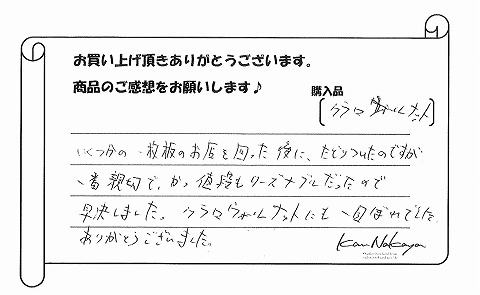 お買い上げ頂きありがとうございます。
商品のご感想をお願いします♪
購入品
[クラロウォルナット]
いくつかの一枚板のお店を回った後に、たどりついたのですが
一番親切で、かつ値段もリーズナブルだったので
即決しました。クラロウォルナットにも一目ぼれでした。
ありがとうございました。
Kan Nakaya